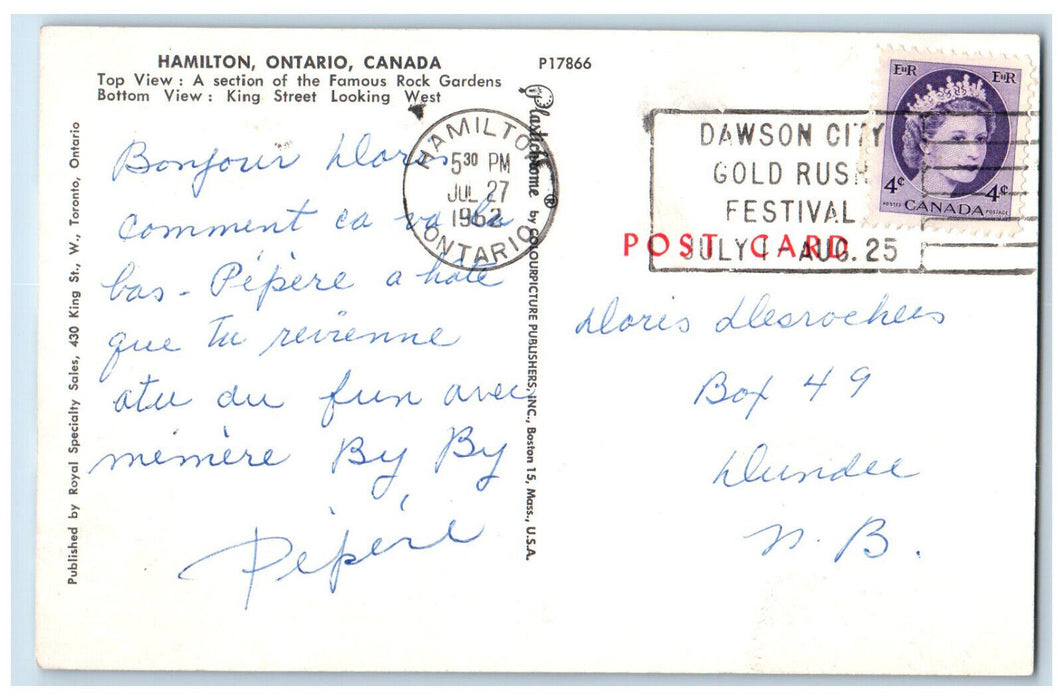 HAMILTON, ONTARIO, CANADA
Top View : A section of the Famous Rock Gardens
Bottom View : King Street Looking West
P17866
Published by Royal Specialty Sales, 430 King St., W., Toronto, Ontario
Plastichrome ® by COLOURPICTURE PUBLISHERS, INC., Boston 15, Mass., U.S.A.
HAMILTON
5 30 PM
JUL 27
1962
ONTARIO
DAWSON CITY
GOLD RUSH
FESTIVAL
JULY 1 - AUG. 25
EIIR EIIR
4¢ 4¢
POSTES CANADA POSTAGE
POST CARD
Bonjour Doris
comment ca va la
bas - Pépère a hate
que tu revienne
atu du fun avec
mémère By By
Pépère
Doris Desrochers
Box 49
Dundee
N. B.